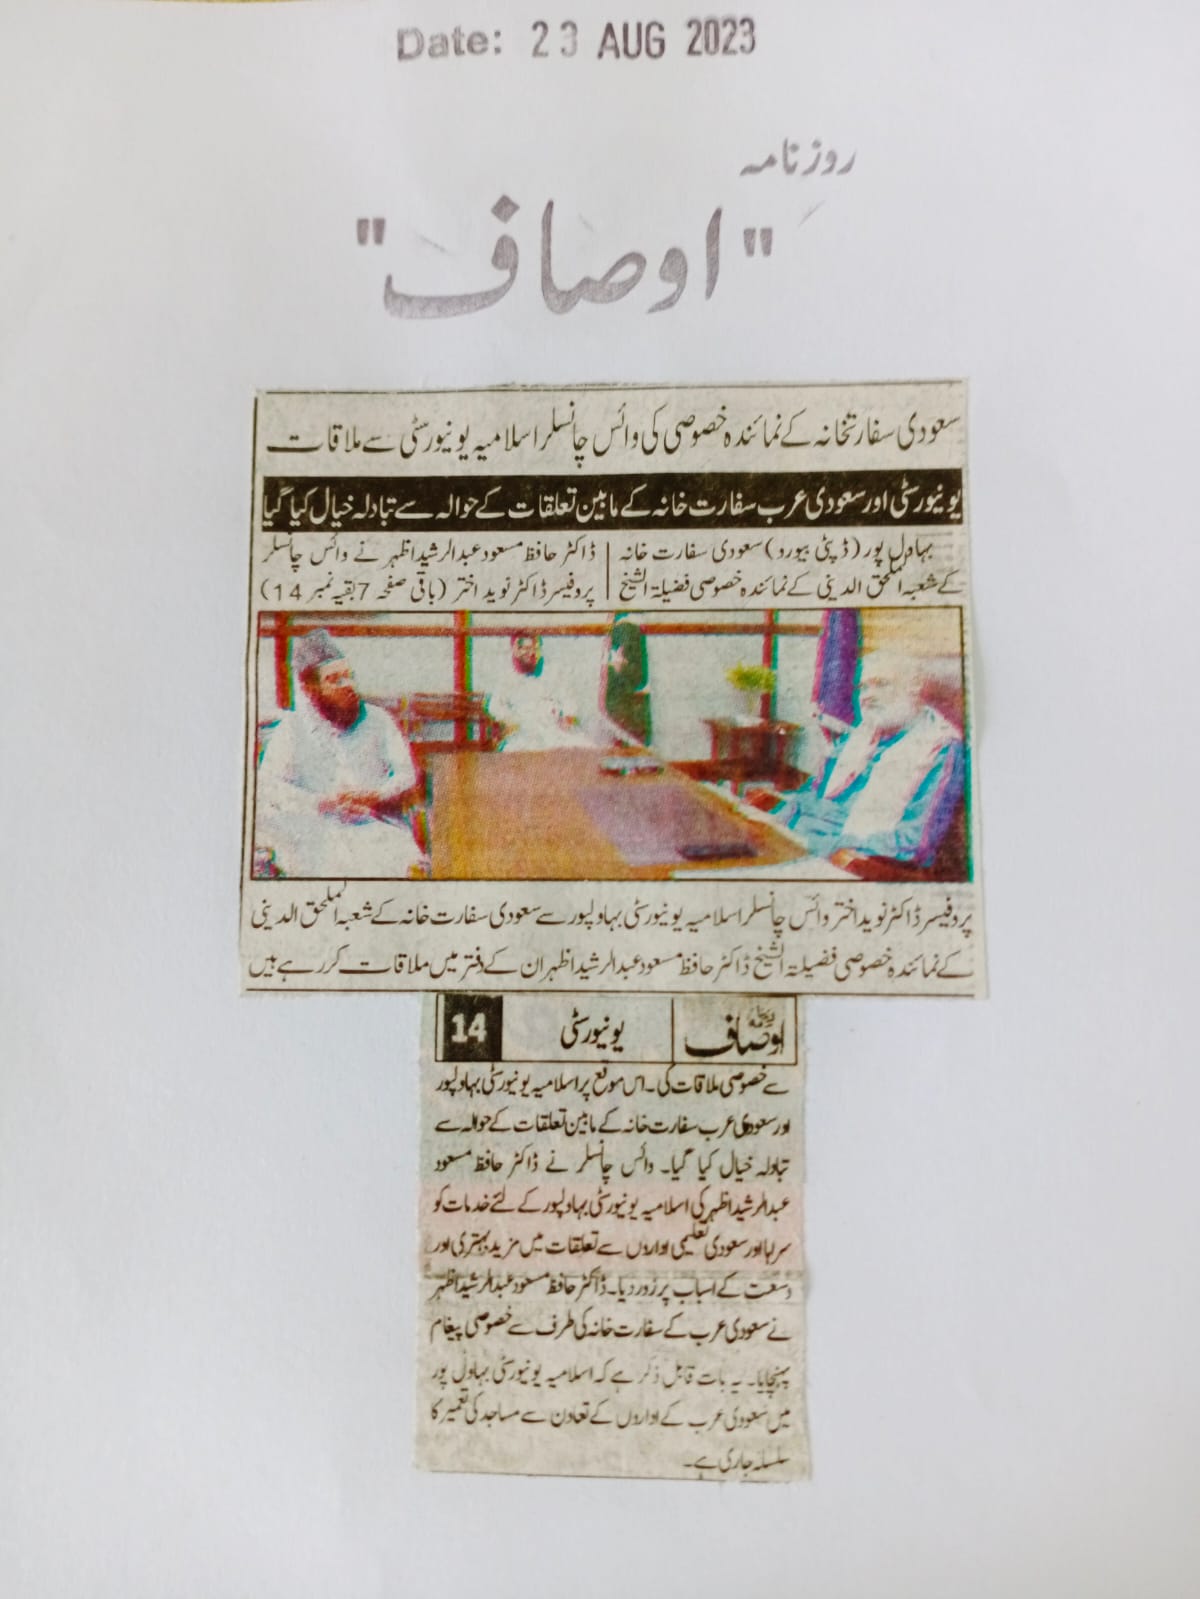 Date: 23 AUG 2023
روزنامہ
"اوصاف"
سعودی سفارتخانہ کے نمائندہ خصوصی کی وائس چانسلر اسلامیہ یونیورسٹی سے ملاقات
یونیورسٹی اور سعودی عرب سفارت خانہ کے مابین تعلقات کے حوالہ سے تبادلہ خیال کیا گیا
بہاول پور (ڈپٹی بیورد) سعودی سفارت خانہ
کے شعبہ الملحق الدینی کے نمائندہ خصوصی فضیلۃ الشیخ
ڈاکٹر حافظ مسعود عبدالرشید اظہر نے وائس چانسلر
پروفیسر ڈاکٹر نوید اختر (باقی صفحہ 7 بقیہ نمبر 14)
پروفیسر ڈاکٹر نوید اختر وائس چانسلر اسلامیہ یونیورسٹی بہاولپور سے سعودی سفارت خانہ کے شعبہ الملحق الدینی
کے نمائندہ خصوصی فضیلۃ الشیخ ڈاکٹر حافظ مسعود عبدالرشید اظہر ان کے دفتر میں ملاقات کر رہے ہیں
اوصاف یونیورسٹی 14
سے خصوصی ملاقات کی۔ اس موقع پر اسلامیہ یونیورسٹی بہاولپور
اور سعودی عرب سفارت خانہ کے مابین تعلقات کے حوالہ سے
تبادلہ خیال کیا گیا۔ وائس چانسلر نے ڈاکٹر حافظ مسعود
عبدالرشید اظہر کی اسلامیہ یونیورسٹی بہاولپور کے لئے خدمات کو
سراہا اور سعودی تعلیمی اداروں سے تعلقات میں مزید بہتری اور
وسعت کے اسباب پر زور دیا۔ ڈاکٹر حافظ مسعود عبدالرشید اظہر
نے سعودی عرب کے سفارت خانہ کی طرف سے خصوصی پیغام
پہنچایا۔ یہ بات قابل ذکر ہے کہ اسلامیہ یونیورسٹی بہاول پور
میں سعودی عرب کے اداروں کے تعاون سے مساجد کی تعمیر کا
سلسلہ جاری ہے۔